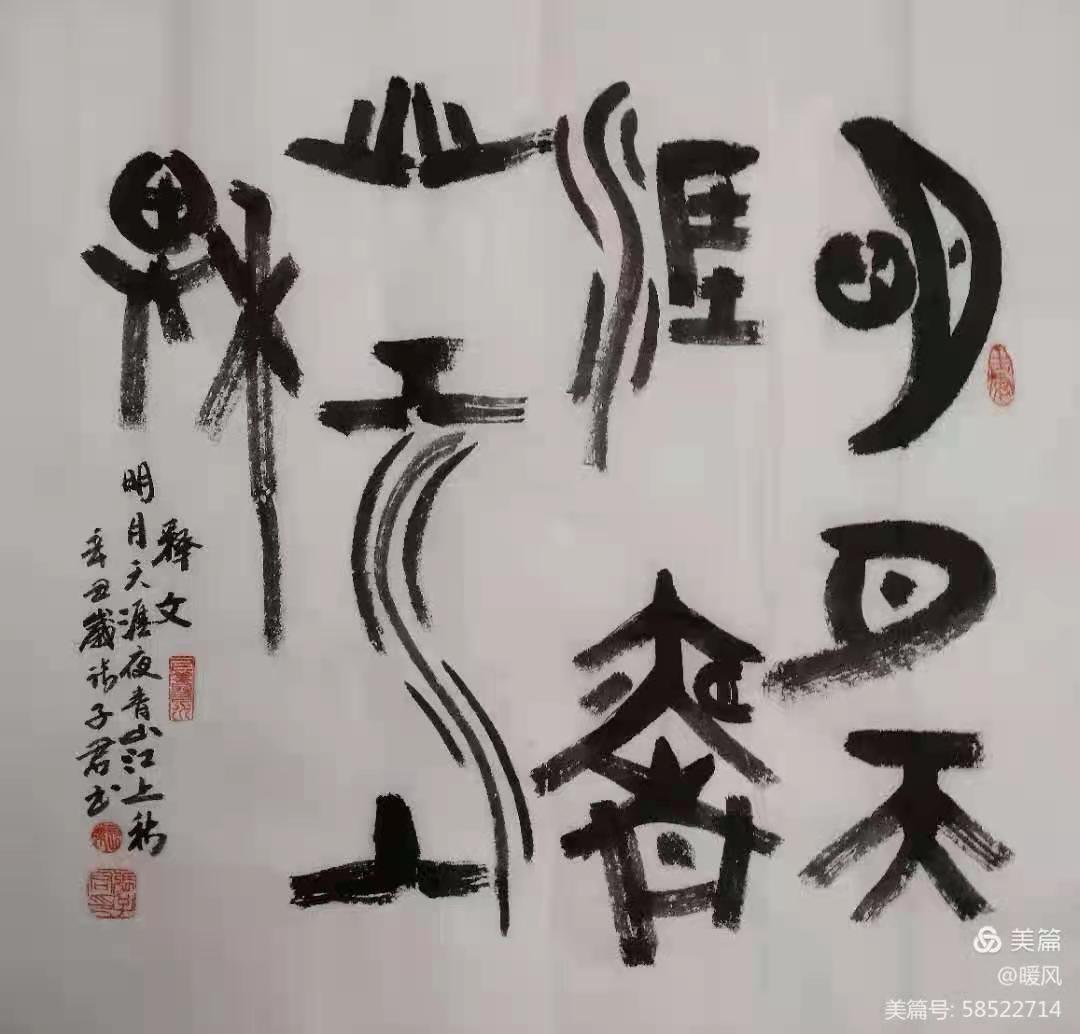 明月天
涯夜青
山江上
秋
釋文
明月天涯夜青山江上秋
辛丑歲張子君書
美篇
@暖风
美篇号: 58522714